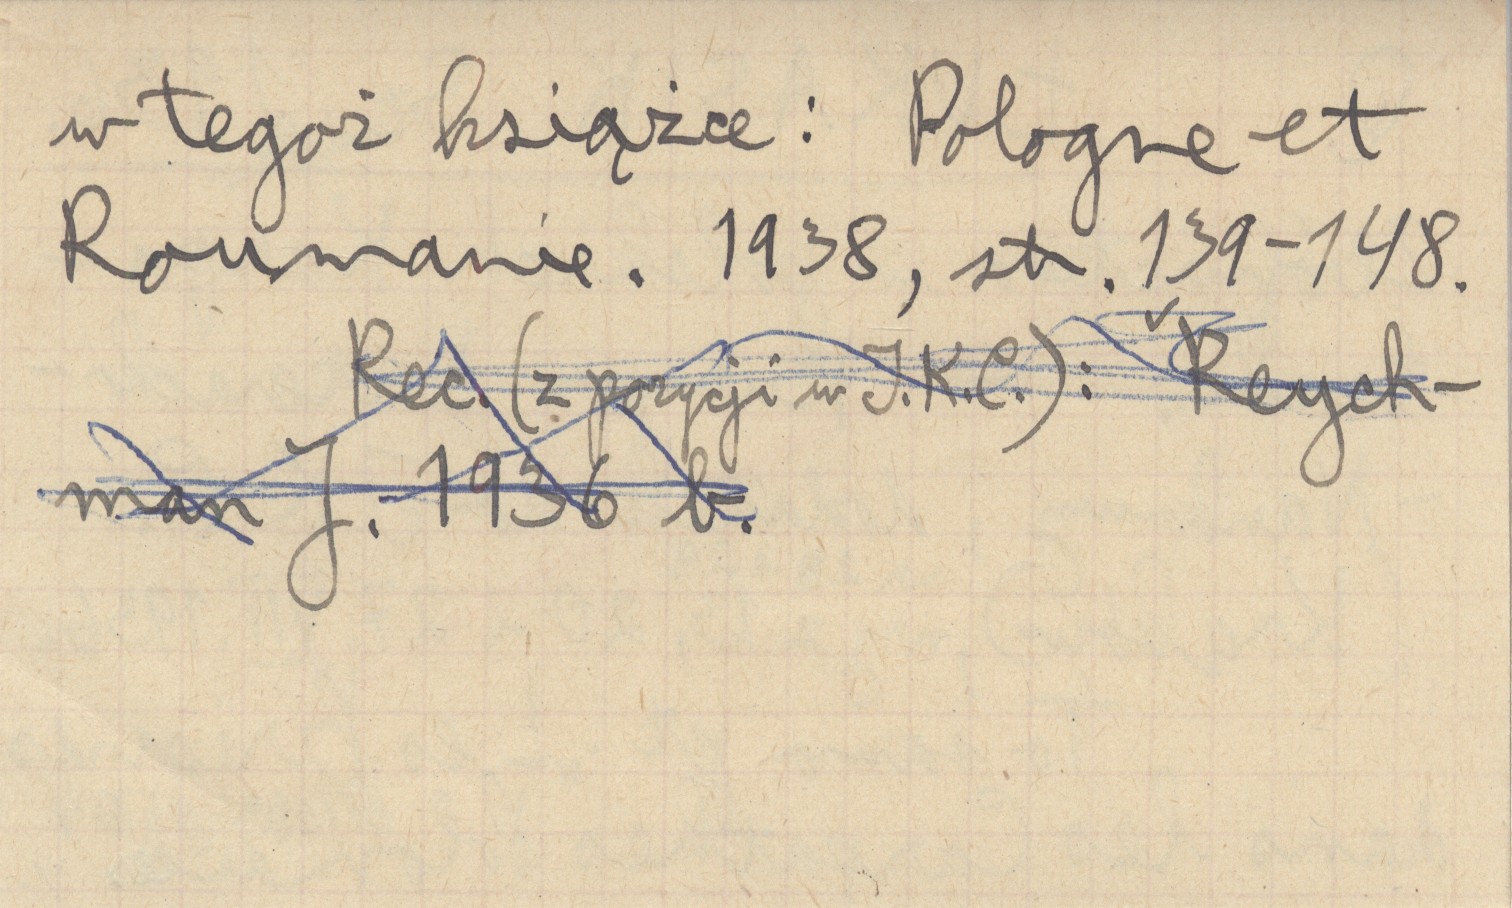 w tegoż książce: Pologne et
Roumanie. 1938, str. 139-148.
Rec. (z pozycji w J.K.C.): Reych-
man J. 1936 b.